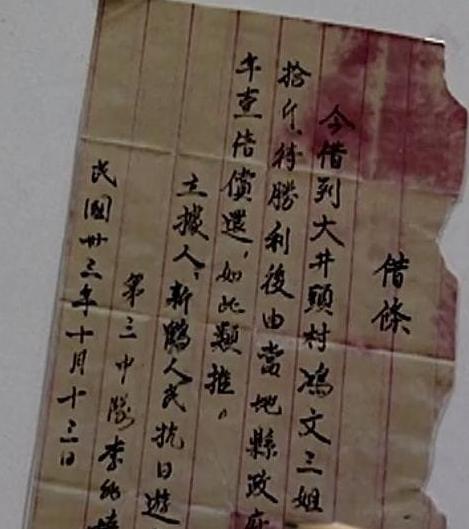 借條
今借到大井頭村鴻文三姐
拾斤、待勝利後由當地縣政府
年壹倍償還，如此類推。
立據人：新鶴人民抗日遊
第三中隊李
民國卅三年十月十三日